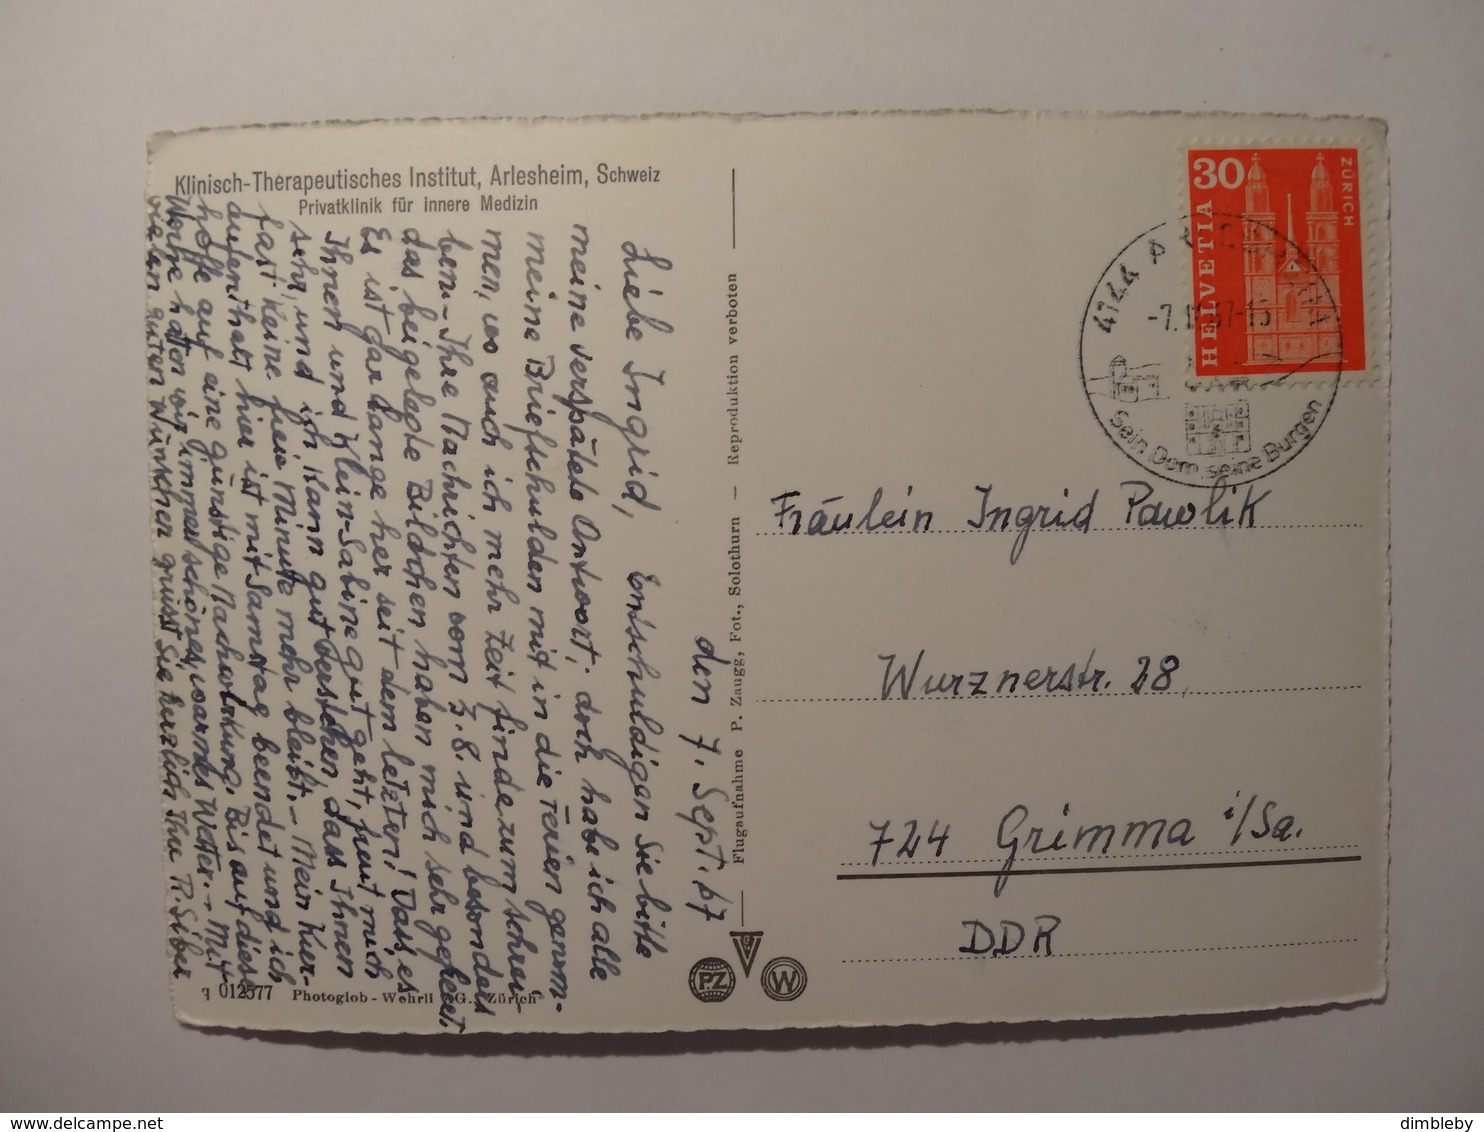 Klinisch-Therapeutisches Institut, Arlesheim, Schweiz
Privatklinik für innere Medizin
den 7. Sept. 67
Liebe Ingrid, Entschuldigen Sie bitte
meine verspätete Antwort; doch habe ich alle
meine Briefschulden mit in die Ferien genom-
men, wo auch ich mehr Zeit finde zum schrei-
ben. - Ihre Nachrichten vom 3.8. und besonders
das beigelegte Bildchen haben mich sehr gefreut.
Es ist gar lange her seit dem letzten! Dass es
Ihnen und Klein-Sabine gut geht, freut mich
sehr, und ich kann gut verstehen, dass Ihnen
fast keine freie Minute mehr bleibt. - Mein Kur-
aufenthalt hier ist mit Samstag beendet und ich
hoffe auf eine günstige Nachwirkung. Bis auf diese
Woche hatten wir immer schönes, warmes Wetter. - Mit
vielen guten Wünschen grüsst Sie herzlich Ihr R. Siber
q 012577 Photoglob-Wehrli A.G., Zürich
Flugaufnahme P. Zaugg, Fot., Solothurn — Reproduktion verboten
PZ
W
30
HELVETIA
ZÜRICH
4144 ARLESHEIM
Sein Dom seine Burgen
Fräulein Ingrid Pawlik
Wurznerstr. 28
724 Grimma i/Sa.
DDR
delcampe.net
dimbleby